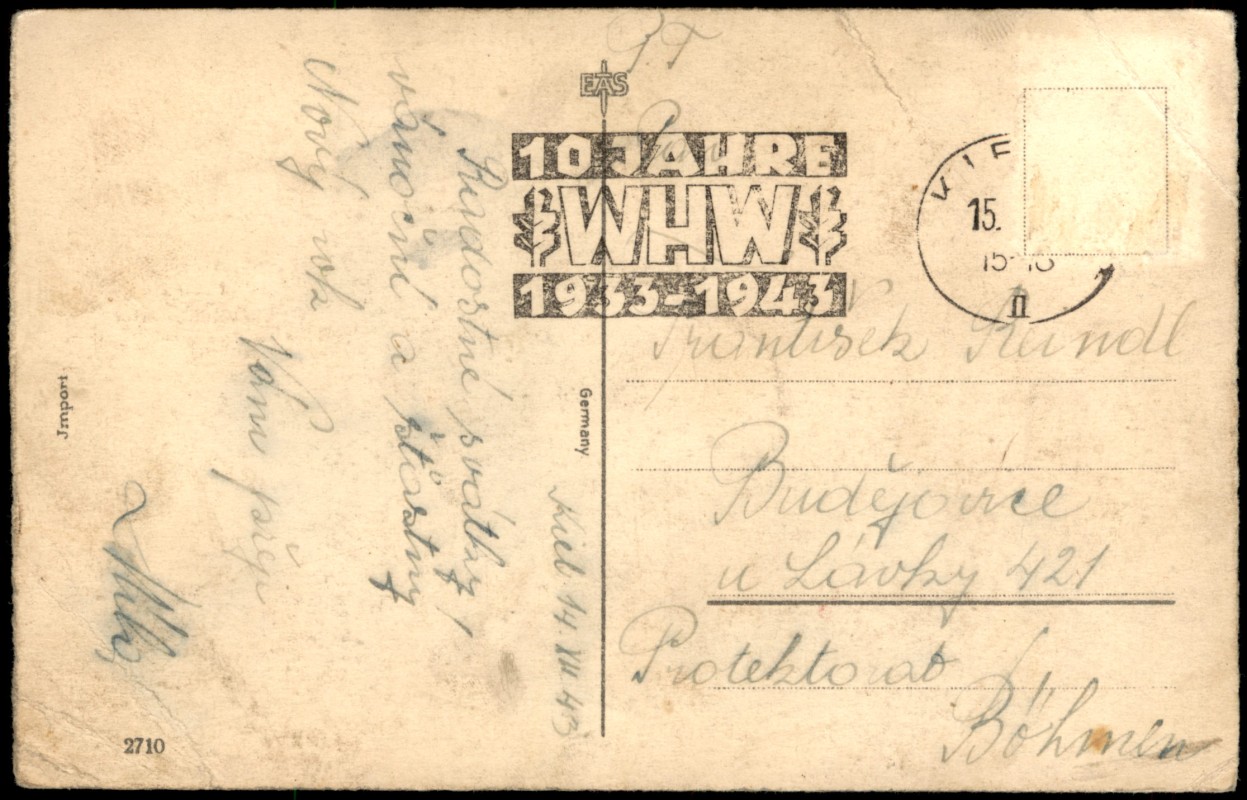 P.T.
EAS
10 JAHRE
WHW
1933-1943
KIE
15.
II
Pan
František
Budějovice
u Lávky 421
Protektorat
Böhmen
Germany
Kiel 14. XII 43
Radostné svátky
vánoční a šťastný
Nový rok
Vám přeje
Import
2710